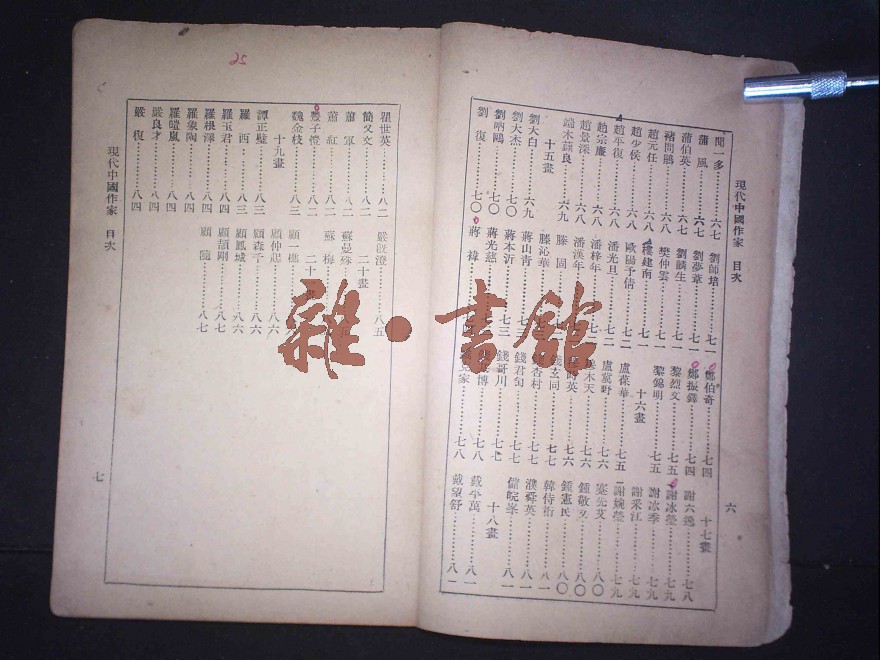 現代中國作家 目次
六
聞一多………六七
蒲風………六七
蒲伯英………六七
褚問鵑………六八
趙元任………六八
趙少侯………六八
趙平復………六八
趙宗濂………六八
趙景深………六八
端木蕻良………六九
十五畫
劉大白………六九
劉大杰………七〇
劉吶鷗………七〇
劉復………七〇
劉師培………七一
劉夢葦………七一
劉麟生………七一
樊仲雲………七一
樓建南………七一
歐陽予倩………七二
潘光旦………七二
潘梓年
潘漢年
滕固
滕沁華
蔣山青
蔣本沂………七三
蔣光慈………七三
蔣
鄭伯奇………七四
鄭振鐸………七四
黎烈文………七五
黎錦明………七五
十六畫
盧葆華………七五
盧冀野………七六
穆木天………七六
穆時英………七六
錢玄同………七七
錢杏村………七七
錢君匋………七七
錢哥川………七七
博………七八
克家………七八
十七畫
謝六逸………七八
謝冰瑩………七九
謝冰季………七九
謝采江………七九
謝婉瑩………七九
蹇先艾………八〇
鍾敬文………八〇
鍾憲民………八〇
韓侍桁………八一
濮舜英………八一
儲皖峯………八一
十八畫
戴平萬………八一
戴望舒………八一
瞿世英………八二
簡又文………八二
蕭軍………八二
蕭紅………八二
豐子愷………八二
魏金枝………八三
十九畫
譚正璧………八三
羅西………八三
羅玉君………八四
羅根澤………八四
羅象陶………八四
羅皚嵐………八四
嚴良才………八四
嚴復………八四
嚴既澄………八五
二十畫
蘇曼殊………五
蘇梅
二十畫
顧一樵
顧仲起………六
顧森千………八六
顧鳳城………八六
顧頡剛………八七
顧隨………八七
現代中國作家 目次
七
25
雜·書館